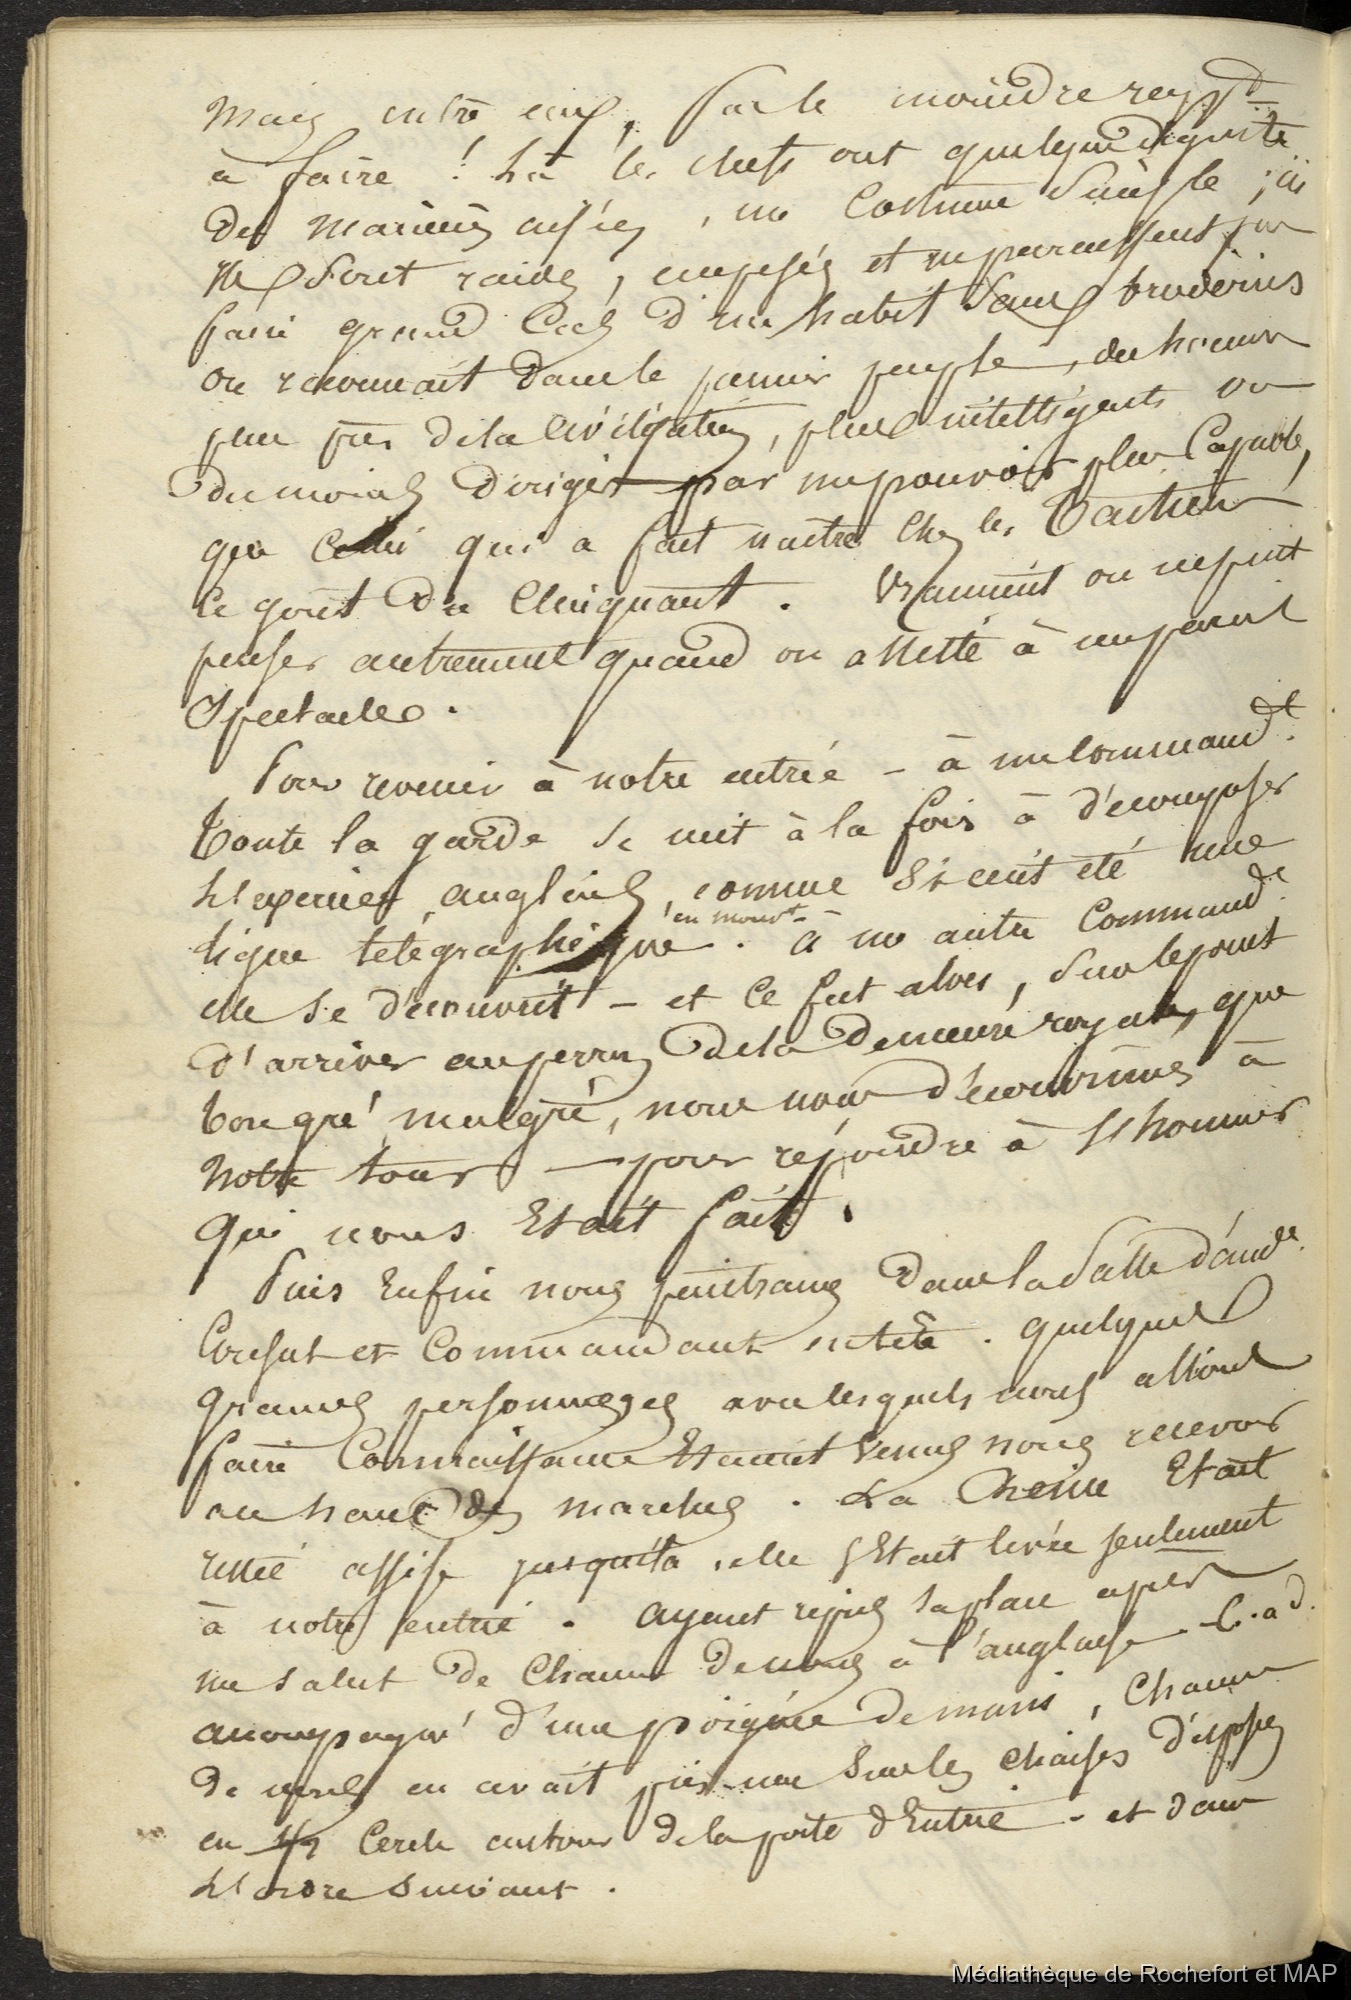 Mais entre eux, pas le moindre rapp.t
à faire ! Là les chefs ont quelque dignité
des manières aisées, un costume simple ; ici
ils sont raides, empesés et ne paraissent pas
faire grand cas d'un habit sans broderies
on reconnait dans le premier peuple, des hommes
plus près de la civilisation, plus intelligents ou
du moins dirigés par un pouvoir plus capable,
que celui qui a fait naître chez les Taïtiens
le goût du clinquant. Vraiment on ne peut
penser autrement quand on assiste à un pareil
spectacle.
Pour revenir à notre entrée - à un command.t
toute la garde se mit à la fois à décomposer
l'exercice anglais, comme si c'eût été une
ligne télégraphique en mouv.t. à un autre command.t
elle se découvrit - et ce fut alors, sur le point
d'arriver au perron de la demeure royale, que
bon gré malgré, nous nous découvrîmes à
notre tour - pour répondre à l'honneur
qui nous était fait.
Puis enfin nous pénétrames dans la salle d'aud.ce
Consul et Commandant en tête. Quelques
grands personnages avec lesquels nous allions
faire connaissance étaient venus nous recevoir
au haut des marches. La Reine était
restée assise jusques là, elle s'était levée seulement
à notre entrée. Ayant repris sa place après
un salut de chacun de nous à l'anglaise. C. à d.
accompagné d'une poignée de mains, chacun
de nous en avait pris une sur les chaises disposées
en 1/2 cercle autour de la porte d'entrée - et dans
l'ordre suivant.
Médiathèque de Rochefort et MAP